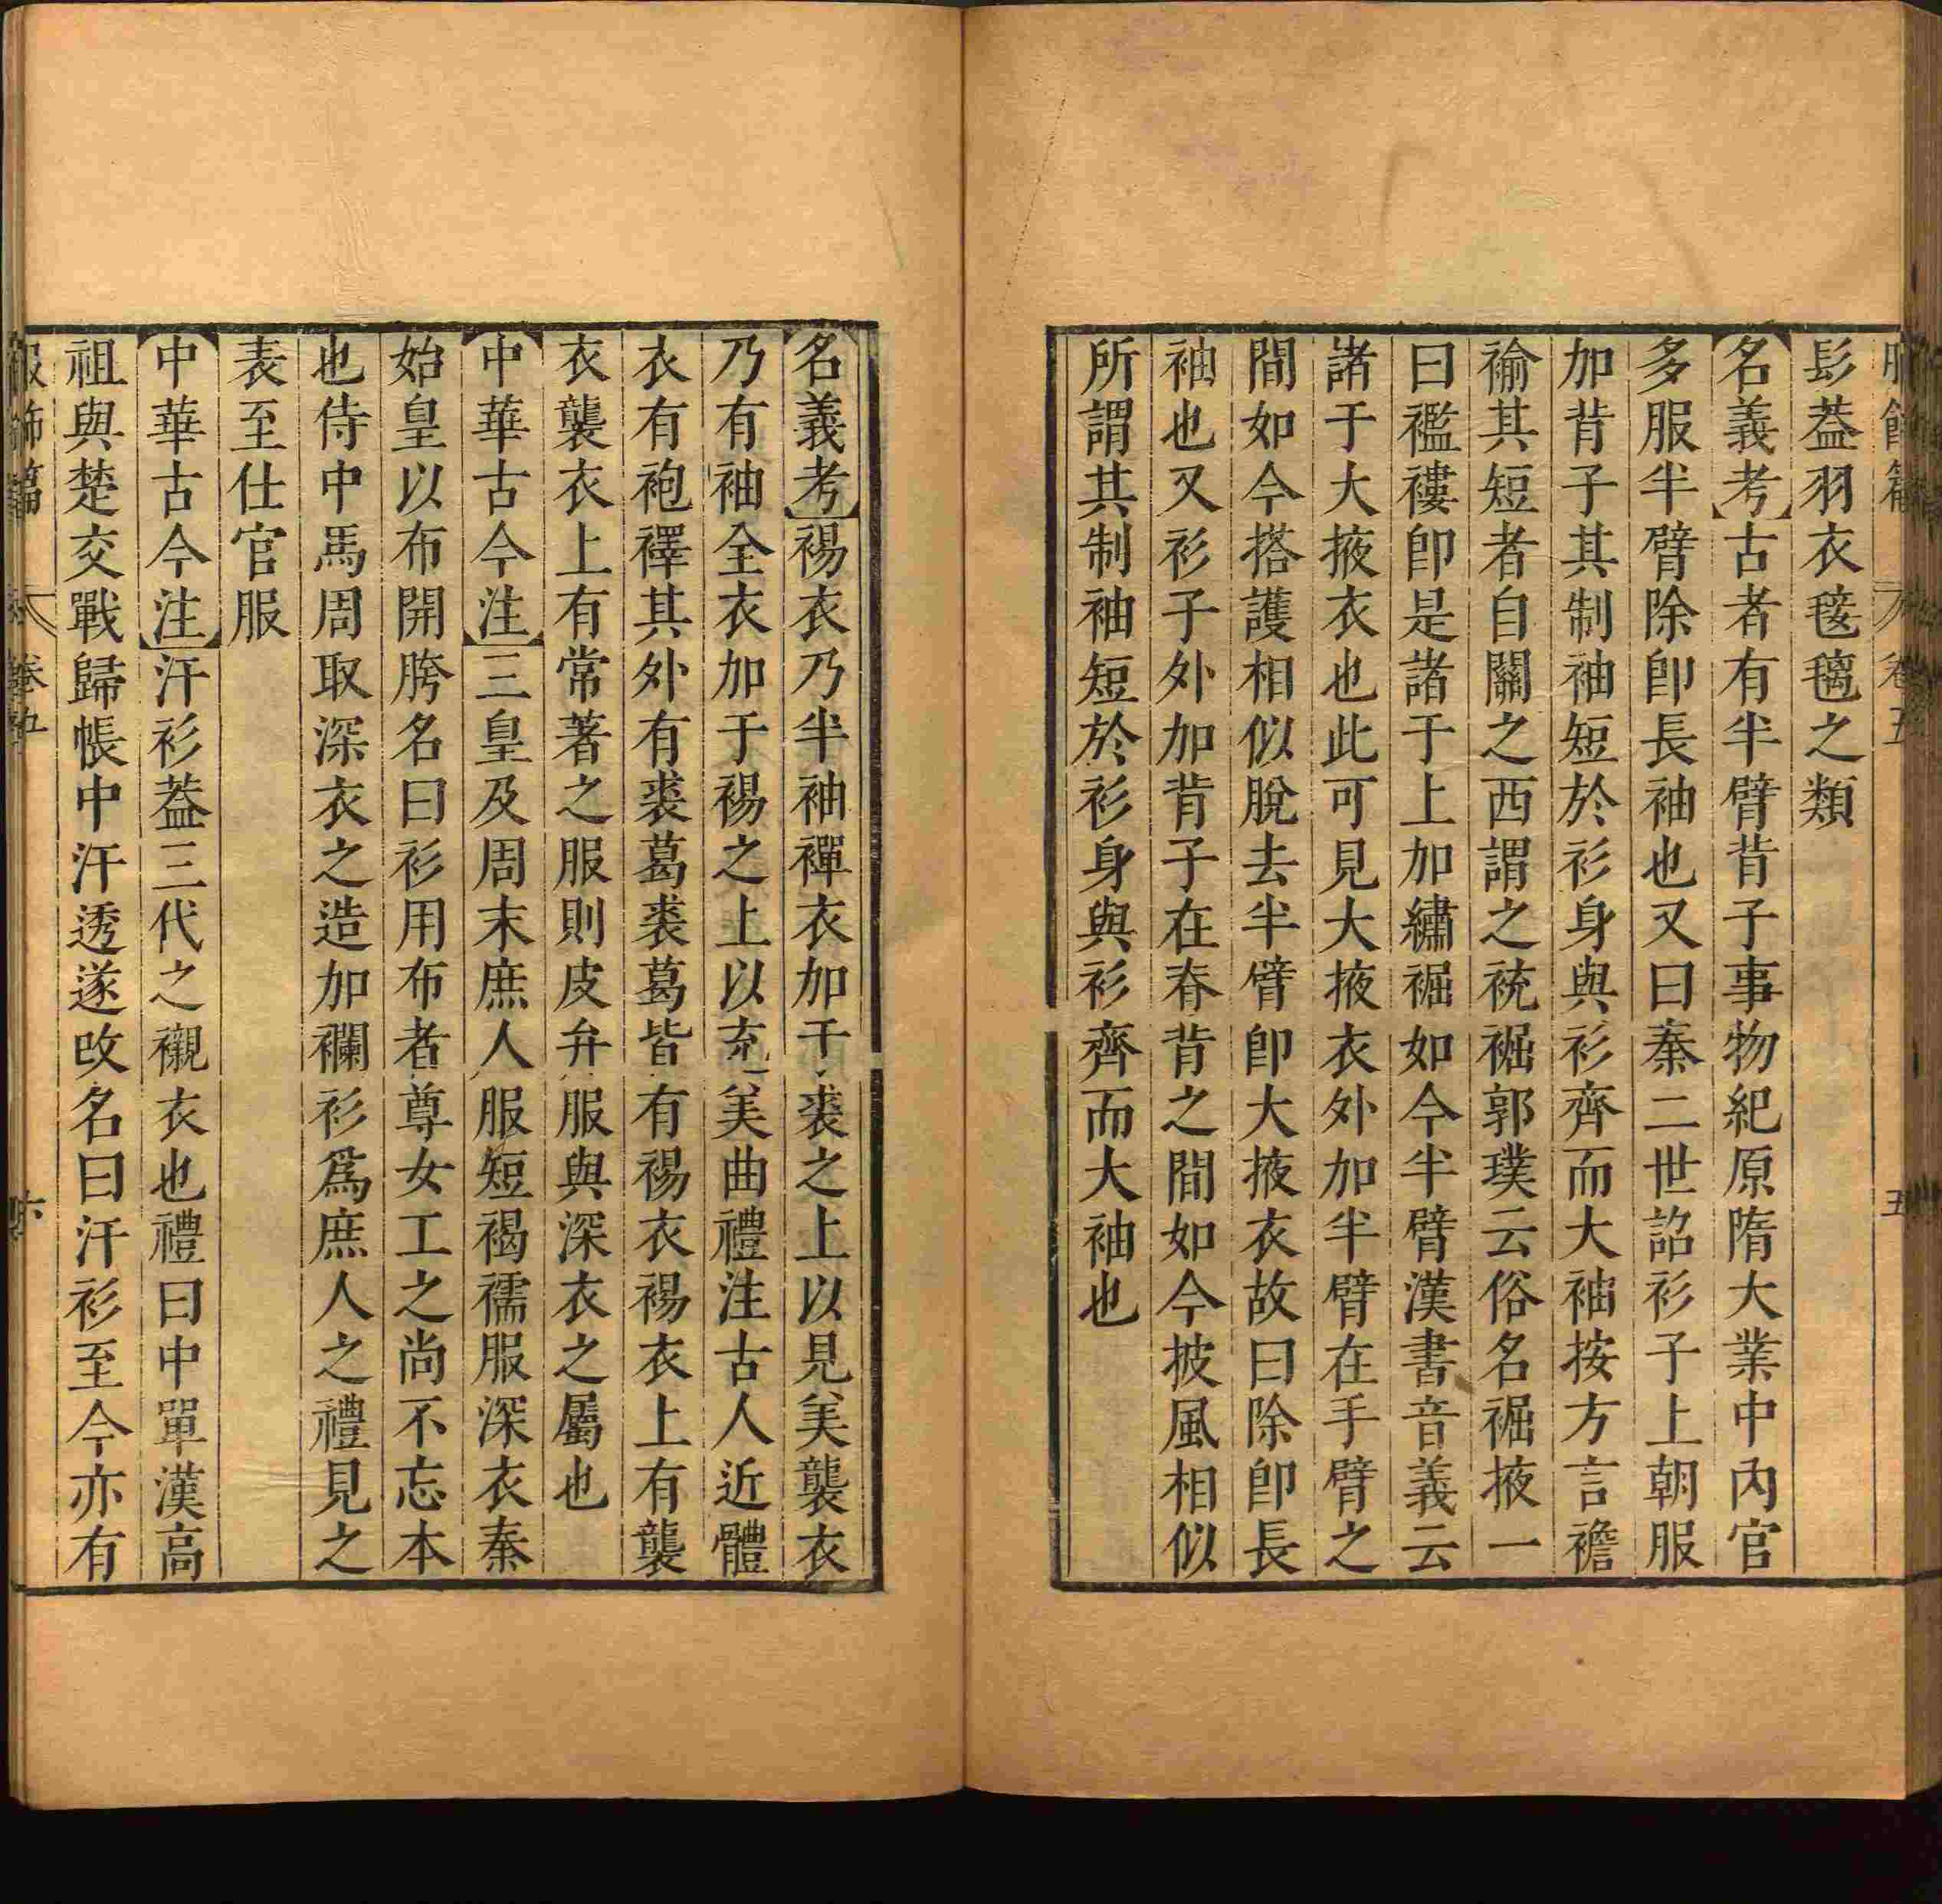 服飾篇 卷五 五
髟葢羽衣氅氅之類
名義考古者有半臂背子事物紀原隋大業中內官
多服半臂除卽長袖也又曰秦二世詔衫子上朝服
加背子其制袖短於衫身與衫齊而大袖按方言襜
褕其短者自關之西謂之裗裾郭璞云俗名裾掖一
曰襤褸卽是諸于上加繡裾如今半臂漢書音義云
諸于大掖衣也此可見大掖衣外加半臂在手臂之
間如今搭護相似脫去半臂卽大掖衣故曰除卽長
袖也又衫子外加背子在脊背之間如今披風相似
所謂其制袖短於衫身與衫齊而大袖也
名義考裼衣乃半袖襌衣加于裘之上以見美襲衣
乃有袖全衣加于裼之上以充美曲禮注古人近體
衣有袍襗其外有裘葛裘葛皆有裼衣裼衣上有襲
衣襲衣上有常著之服則皮弁服與深衣之屬也
中華古今注三皇及周末庶人服短褐襦服深衣秦
始皇以布開胯名曰衫用布者尊女工之尚不忘本
也侍中馬周取深衣之造加襴衫爲庶人之禮見之
表至仕官服
中華古今注汗衫葢三代之襯衣也禮曰中單漢高
祖與楚交戰歸帳中汗透遂改名曰汗衫至今亦有
服飾篇 卷五 六